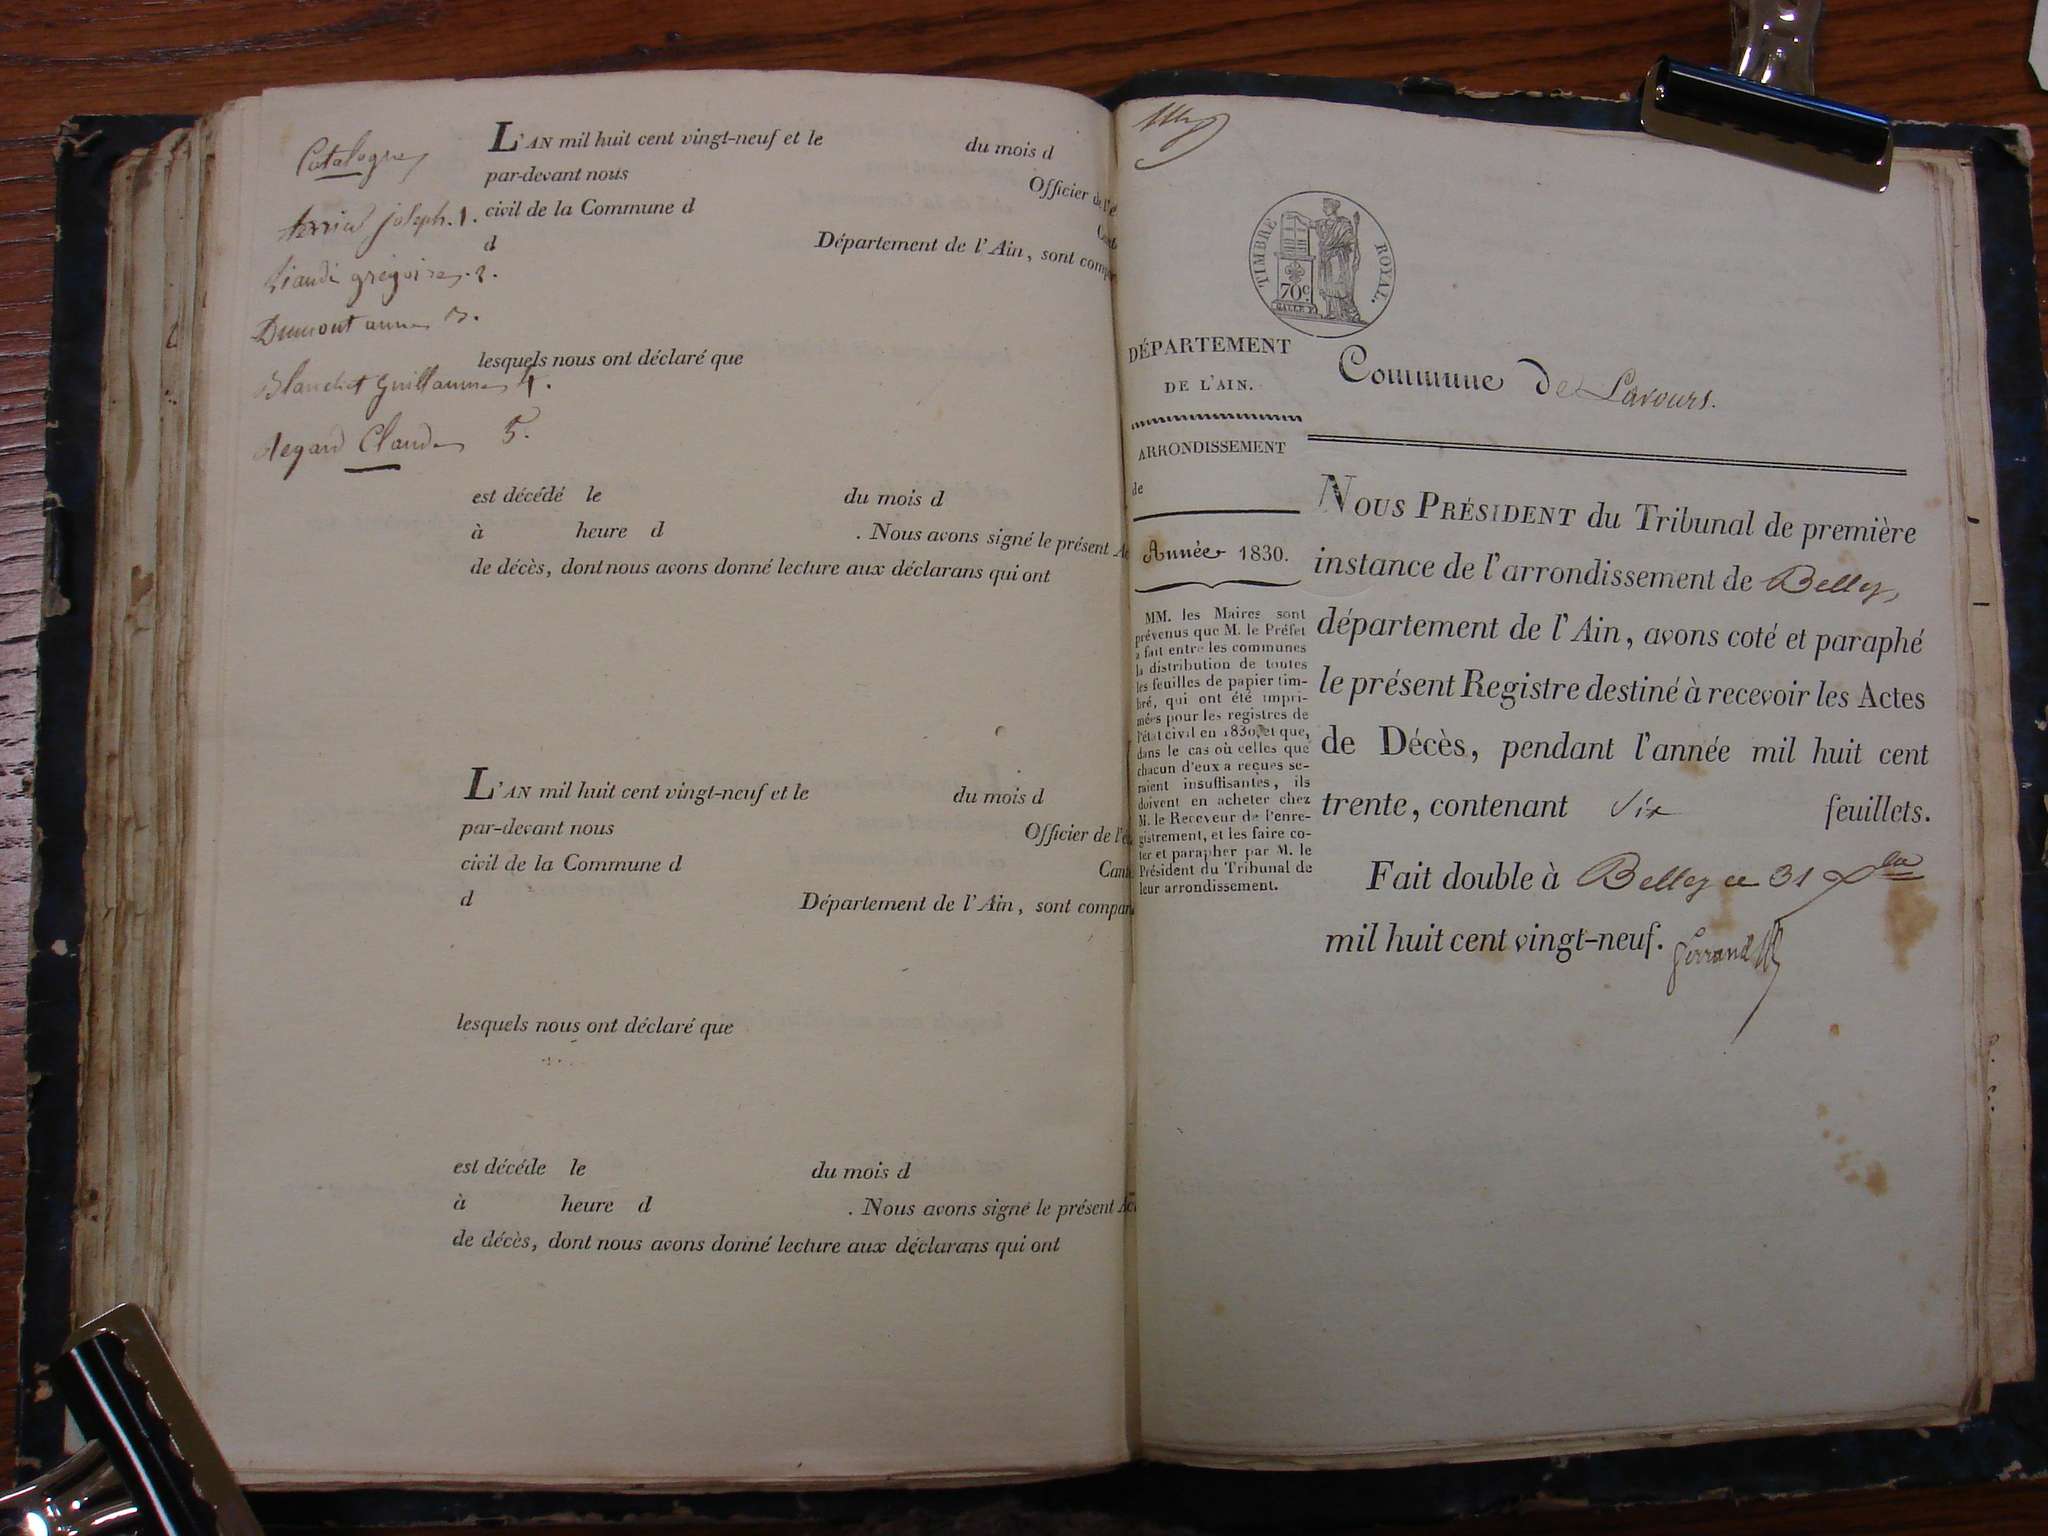 Catalogue
joseph. 1.
grégoire. 2.
Dumont anne 3.
Blanchet guillaume 4.
Regard Claude 5.
L'AN mil huit cent vingt-neuf et le du mois d
par-devant nous Officier de l'é
civil de la Commune d Cant
d Département de l'Ain, sont compar
lesquels nous ont déclaré que
est décédé le du mois d
à heure d . Nous avons signé le présent Ac
de décès, dont nous avons donné lecture aux déclarans qui ont
L'AN mil huit cent vingt-neuf et le du mois d
par-devant nous Officier de l'é
civil de la Commune d Cant
d Département de l'Ain, sont compar
lesquels nous ont déclaré que
est décéde le du mois d
à heure d . Nous avons signé le présent Ac
de décès, dont nous avons donné lecture aux déclarans qui ont
TIMBRE ROYAL.
70 c.
DÉPARTEMENT
DE L'AIN.
ARRONDISSEMENT
de
Année 1830.
MM. les Maires sont
prévenus que M. le Préfet
a fait entre les communes
la distribution de toutes
les feuilles de papier tim-
bré, qui ont été impri-
mées pour les registres de
l'état civil en 1830, et que,
dans le cas où celles que
chacun d'eux a reçues se-
raient insuffisantes, ils
doivent en acheter chez
M. le Receveur de l'enre-
gistrement, et les faire co-
ter et parapher par M. le
Président du Tribunal de
leur arrondissement.
Commune de Lavours.
NOUS PRÉSIDENT du Tribunal de première
instance de l'arrondissement de Belley,
département de l'Ain, avons coté et paraphé
le présent Registre destiné à recevoir les Actes
de Décès, pendant l'année mil huit cent
trente, contenant six feuillets.
Fait double à Belley ce 31 Xbre
mil huit cent vingt-neuf.